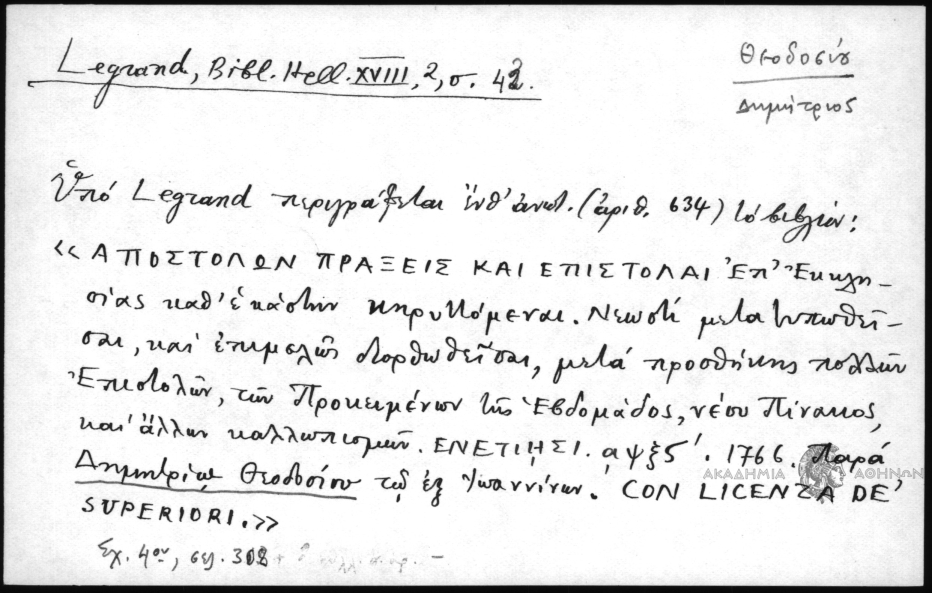 Legrand, Bibl. Hell. XVIII, 2, σ. 42.
Θεοδοσίου
Δημήτριος
Ὑπό Legrand περιγράφεται ἔνθ' ἀνωτ. (ἀριθ. 634) τό βιβλίον:
«ΑΠΟΣΤΟΛΩΝ ΠΡΑΞΕΙΣ ΚΑΙ ΕΠΙΣΤΟΛΑΙ Ἐπ' Ἐκκλη-
σίας καθ' ἑκάστην κηρυττόμεναι. Νεωστί μετατυπωθεῖ-
σαι, καί ἐπιμελῶς διορθωθεῖσαι, μετά προσθήκης πολλῶν
Ἐπιστολῶν, τῶν Προκειμένων τῆς Ἑβδομάδος, νέου Πίνακος,
καί ἄλλων καλλωπισμῶν. ΕΝΕΤΙΗΣΙ. αψξϛ΄. 1766. Παρά
Δημητρίῳ Θεοδοσίου τῷ ἐξ Ἰωαννίνων. CON LICENZA DE'
SUPERIORI.»
Σχ. 4ον, σελ. 308
ΑΚΑΔΗΜΙΑ ΑΘΗΝΩΝ